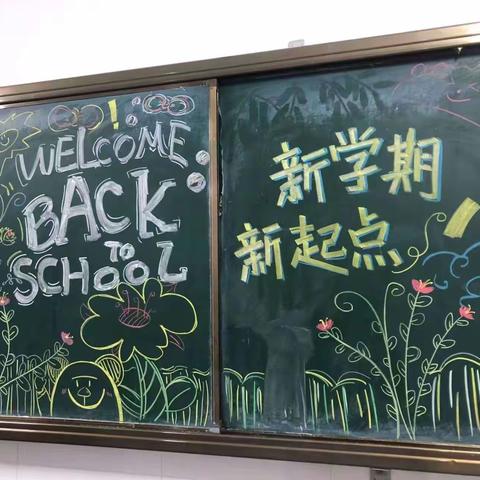 WELCOME
BACK
TO
SCHOOL
新学期
新起点